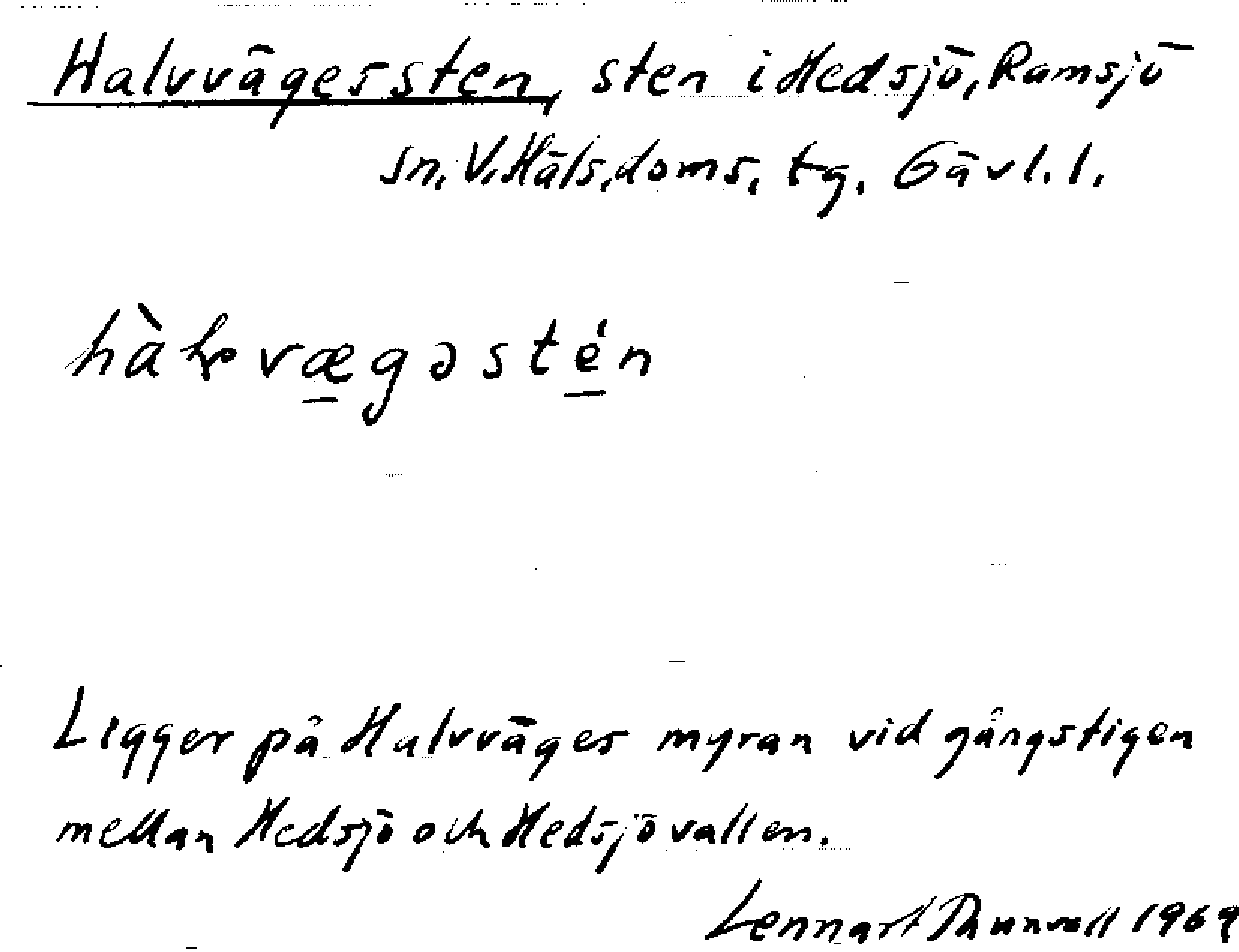 Halvvägessten, sten i Hedsjö, Ramsjö
sn. V. Häls. doms. tg. Gävl. l.
hàɫvvægəstén
Ligger på Halvväges myran vid gångstigen
mellan Hedsjö och Hedsjövallen.
Lennart Thunvall 1969